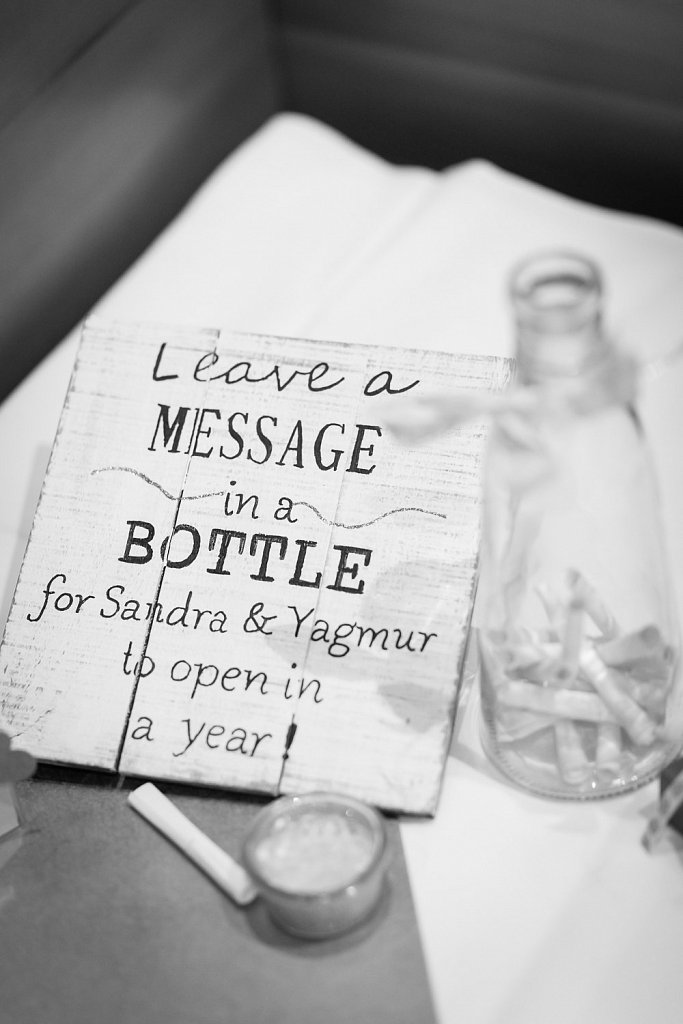 Leave a
MESSAGE
in a
BOTTLE
for Sandra & Yagmur
to open in
a year!